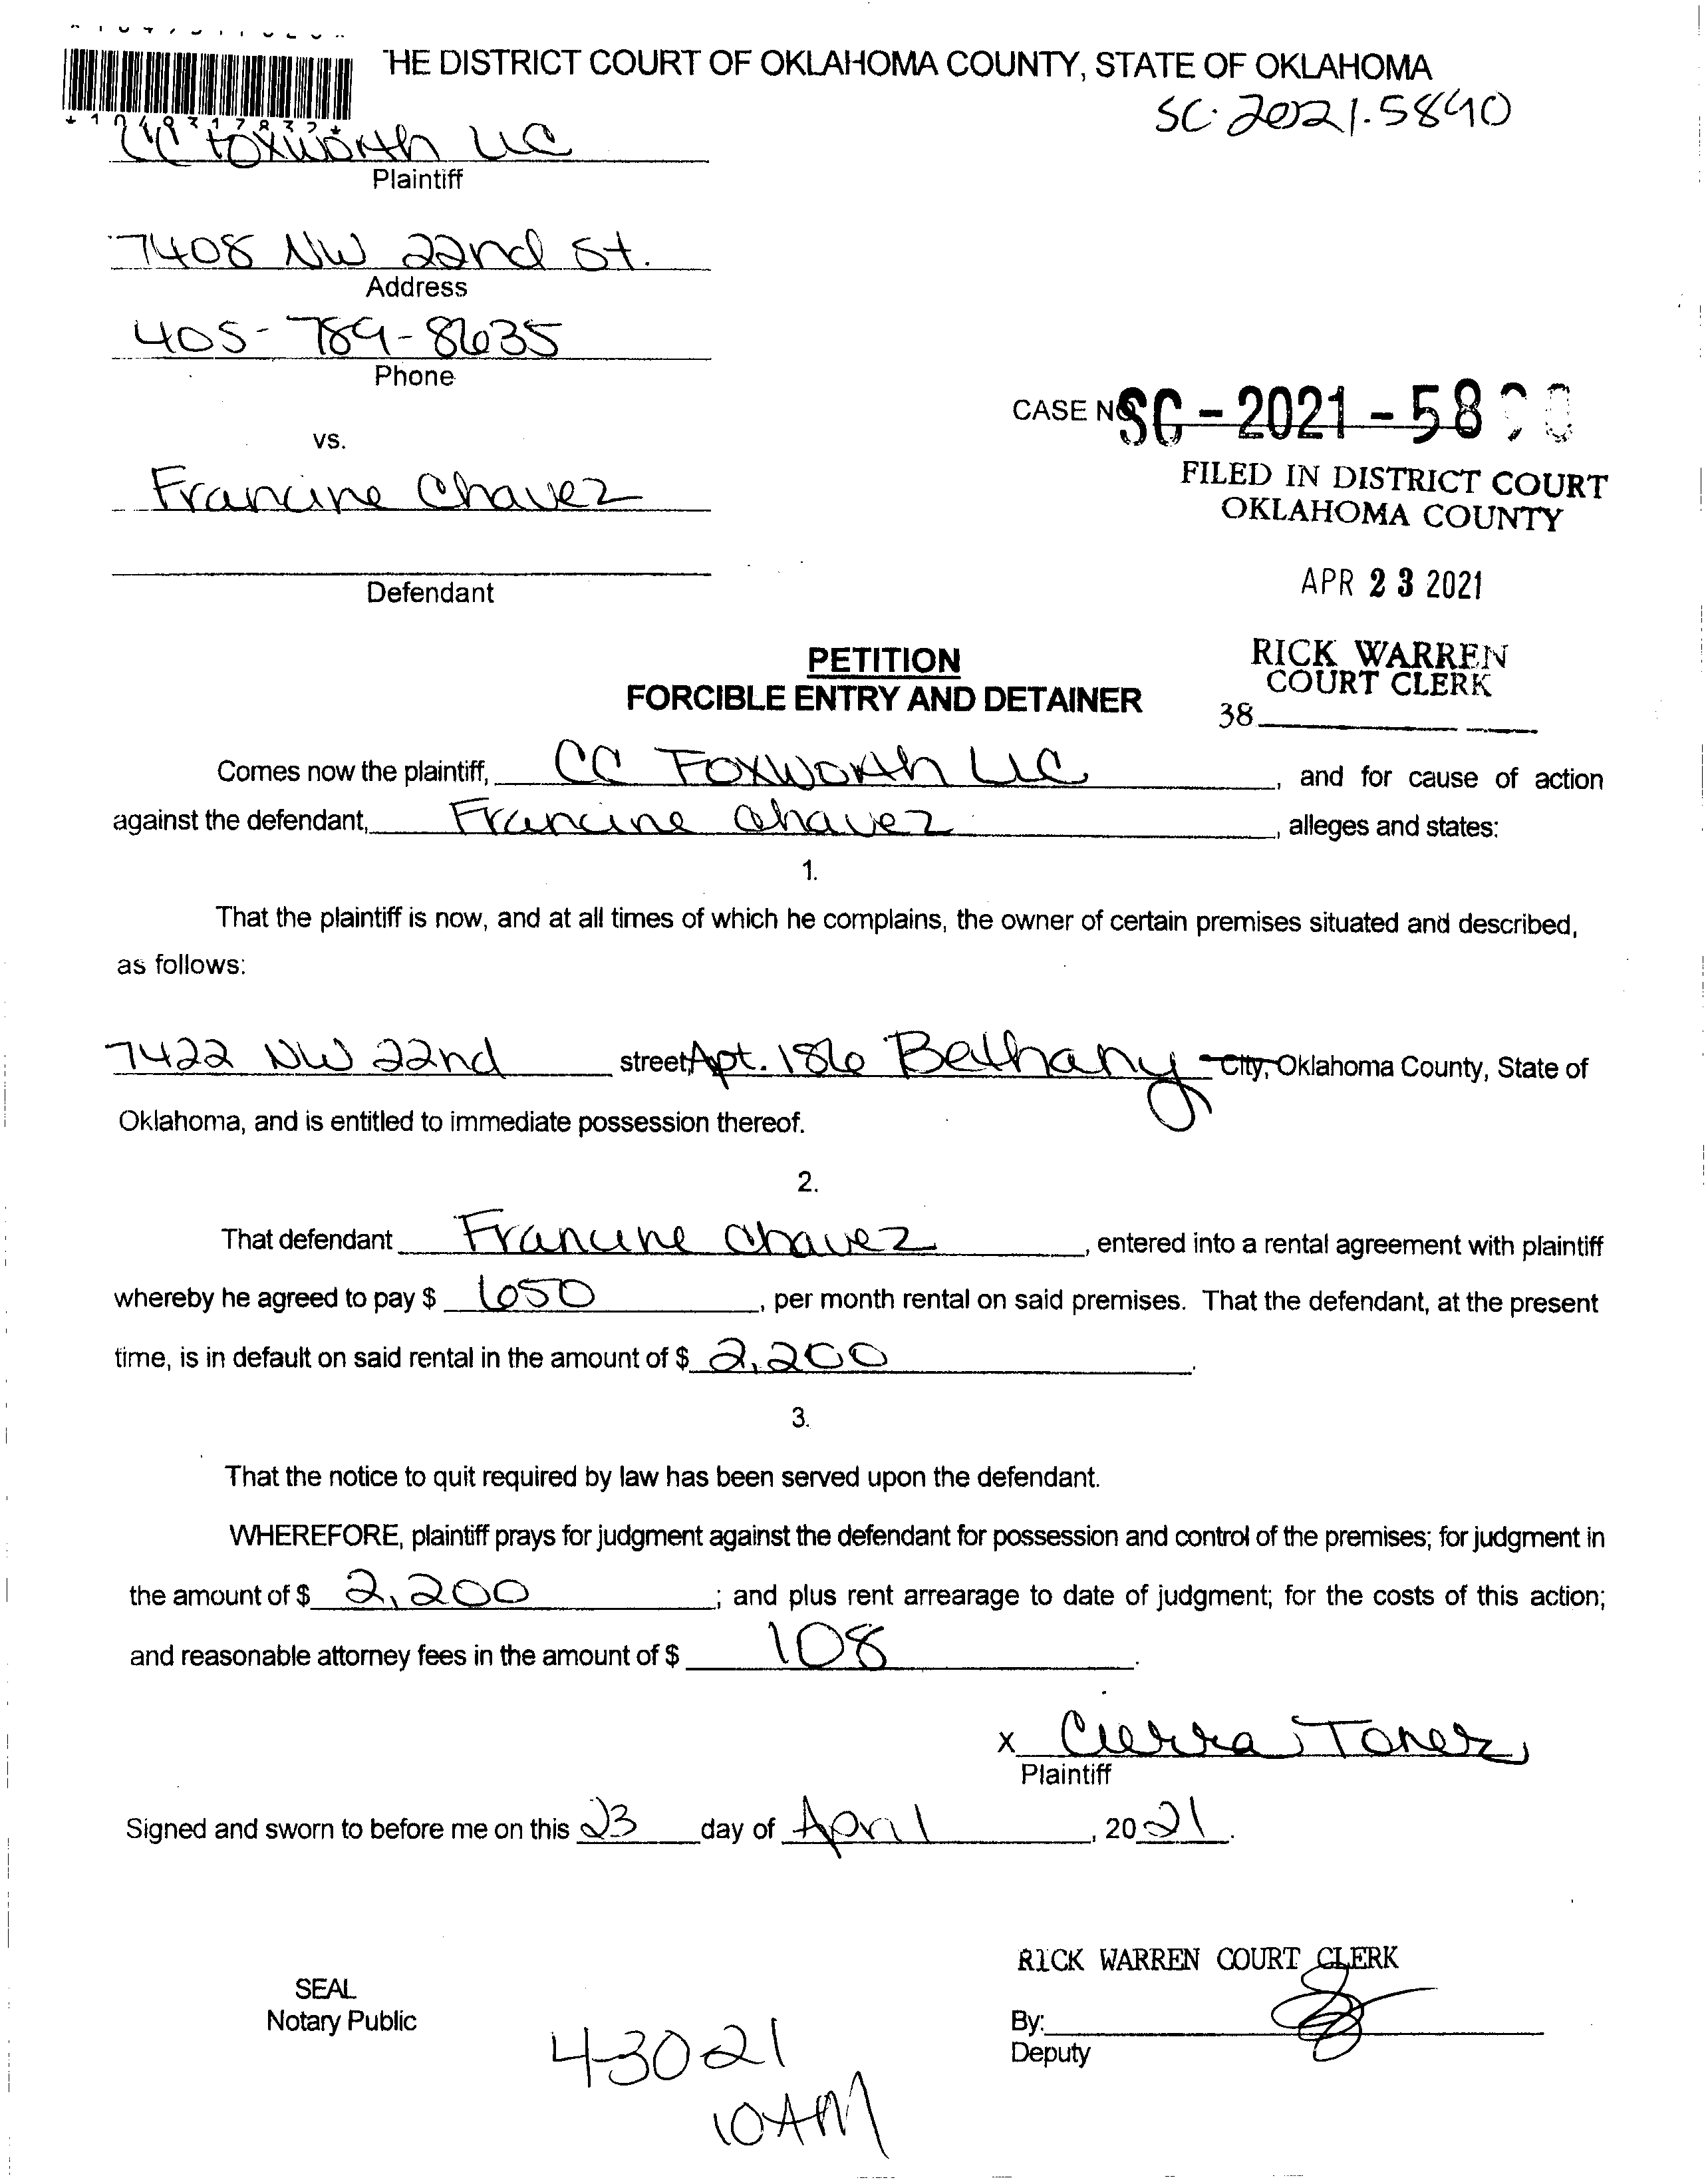 HE DISTRICT COURT OF OKLAHOMA COUNTY, STATE OF OKLAHOMA
SC-2021-5840
CC Foxworth LLC
Plaintiff
7408 NW 22nd St.
Address
405-789-8635
Phone
CASE NO SC-2021-58
vs.
FILED IN DISTRICT COURT
OKLAHOMA COUNTY
Francine Chavez
APR 23 2021
Defendant
RICK WARREN
COURT CLERK
38
PETITION
FORCIBLE ENTRY AND DETAINER
Comes now the plaintiff, CC Foxworth LLC, and for cause of action
against the defendant, Francine Chavez, alleges and states:
1.
That the plaintiff is now, and at all times of which he complains, the owner of certain premises situated and described,
as follows:
7422 NW 22nd street, Apt. 186 Bethany City, Oklahoma County, State of
Oklahoma, and is entitled to immediate possession thereof.
2.
That defendant Francine Chavez, entered into a rental agreement with plaintiff
whereby he agreed to pay $ 650, per month rental on said premises. That the defendant, at the present
time, is in default on said rental in the amount of $ 2,200.
3.
That the notice to quit required by law has been served upon the defendant.
WHEREFORE, plaintiff prays for judgment against the defendant for possession and control of the premises; for judgment in
the amount of $ 2,200; and plus rent arrearage to date of judgment; for the costs of this action;
and reasonable attorney fees in the amount of $ 108.
x Cierra Toney
Plaintiff
Signed and sworn to before me on this 23 day of April, 2021.
RICK WARREN COURT CLERK
SEAL
Notary Public
By:
Deputy
4-30-21
10AM